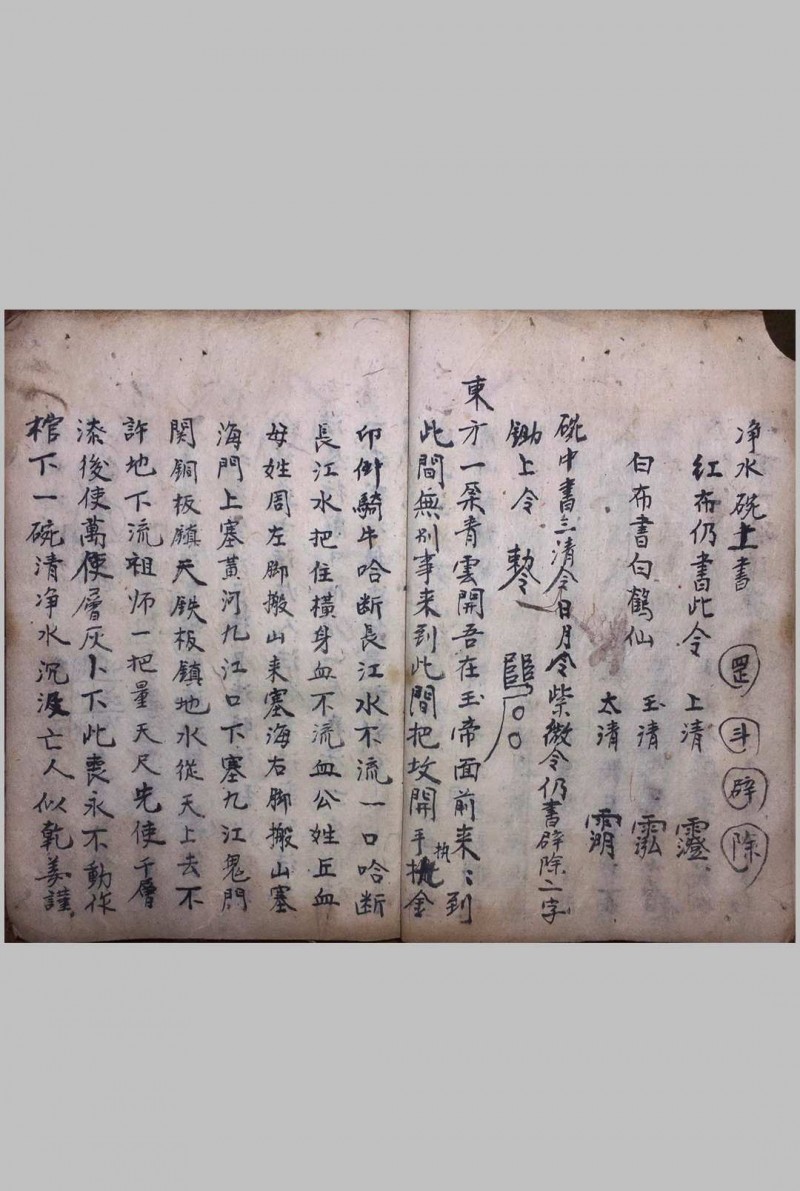 净水碗上書 罡 斗 辟 除
紅布仍書此令 上清 霛
白布書白鶴仙 玉清
太清
碗中書三清令日月令紫微令仍書辟除二字
鋤上令
東方一朵青雲開吾在玉帝面前来〻到
此間無別事来到此間把坟開手执金
印倒騎牛哈断長江水不流一口哈断
長江水把住横身血不流血公姓丘血
母姓周左脚搬山来塞海右脚搬山塞
海門上塞黃河九江口下塞九江鬼門
関銅板鎮天鉄板鎮地水從天上去不
許地下流祖师一把量天尺先使千層
漆後使萬使層灰卜下此喪永不動作
棺下一碗清净水沉没亡人似乾姜謹